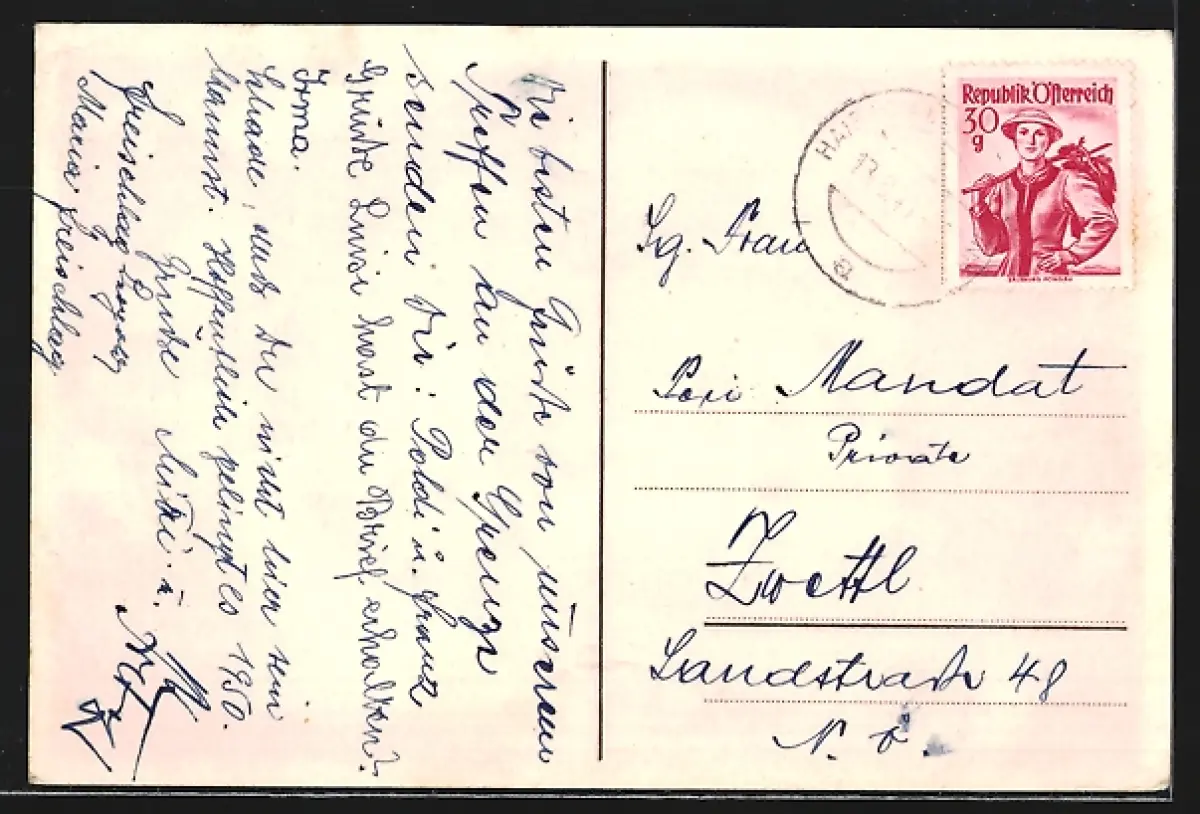 Die besten Grüße von unserem
Treffen an der Grenze
senden Dir: Poldi u. Franz
Grüße Luise hast du Brief erhalten?
Irma.
Schade, daß Du nicht hier sein
kannst. Hoffentlich gelingt es 1950.
Grüße Mitzi u.
Freischlag
Maria Freischlag
Republik Österreich
30
g
SALZBURG, PONGAU
HAI
a
Sg. Frau
Poxi Mandat
Private
Zwettl
Landstraße 48
N. Ö.